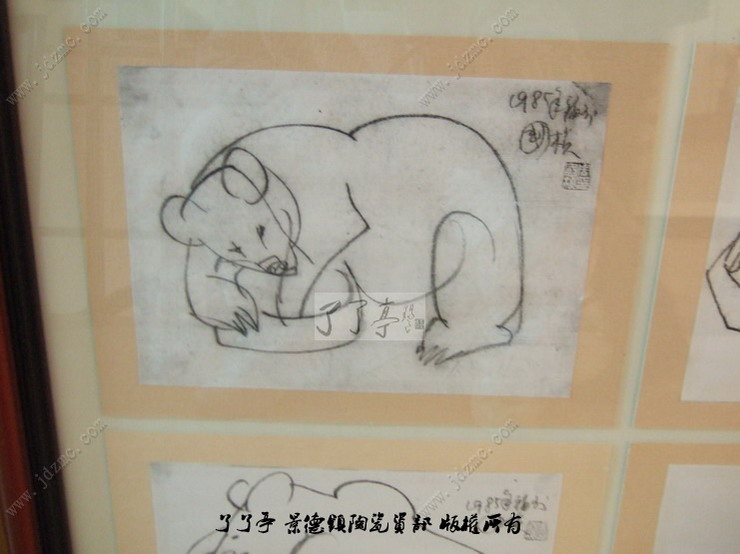 www.jdzmc.com
www.jdzmc.com
1985年
国桢
了了亭
www.jdzmc.com
www.jdzmc.com
1985年
了了亭 景德鎮陶瓷資部 版權所有